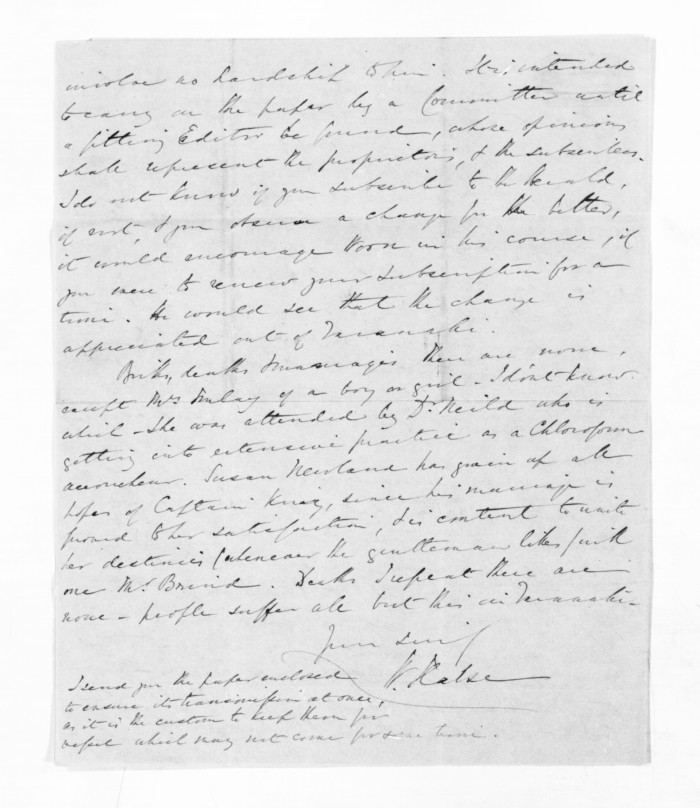 involve no hardship to him. It is intended
to carry on the paper by a Committee until
a fitting Editor be found, whose opinions
shall represent the proprietors, & the subscribers.
I do not know if you subscribe to the Herald,
if not, & you observe a change for the better,
it would encourage Woon in his course, if
you were to renew your subscription for a
time. He would see that the change is
appreciated out of Taranaki.
Births, deaths & marriages there are none,
except Mrs Finlay of a boy or girl - I don't know
which - She was attended by Dr. Neild who is
getting into extensive practice as a Chloroform
accoucheur. Susan Newland has given up all
hopes of Captain King, since his marriage is
proved to her satisfaction, & is content to unite
her destinies (whenever the gentleman likes) with
one Mr. Brind. Deaths I repeat there are
none - people suffer all but this in Taranaki -
Yours
W. Halse
I send you the paper enclosed
to ensure its transmission at once,
as it is the custom to keep them for
vessel which may not come for some time.